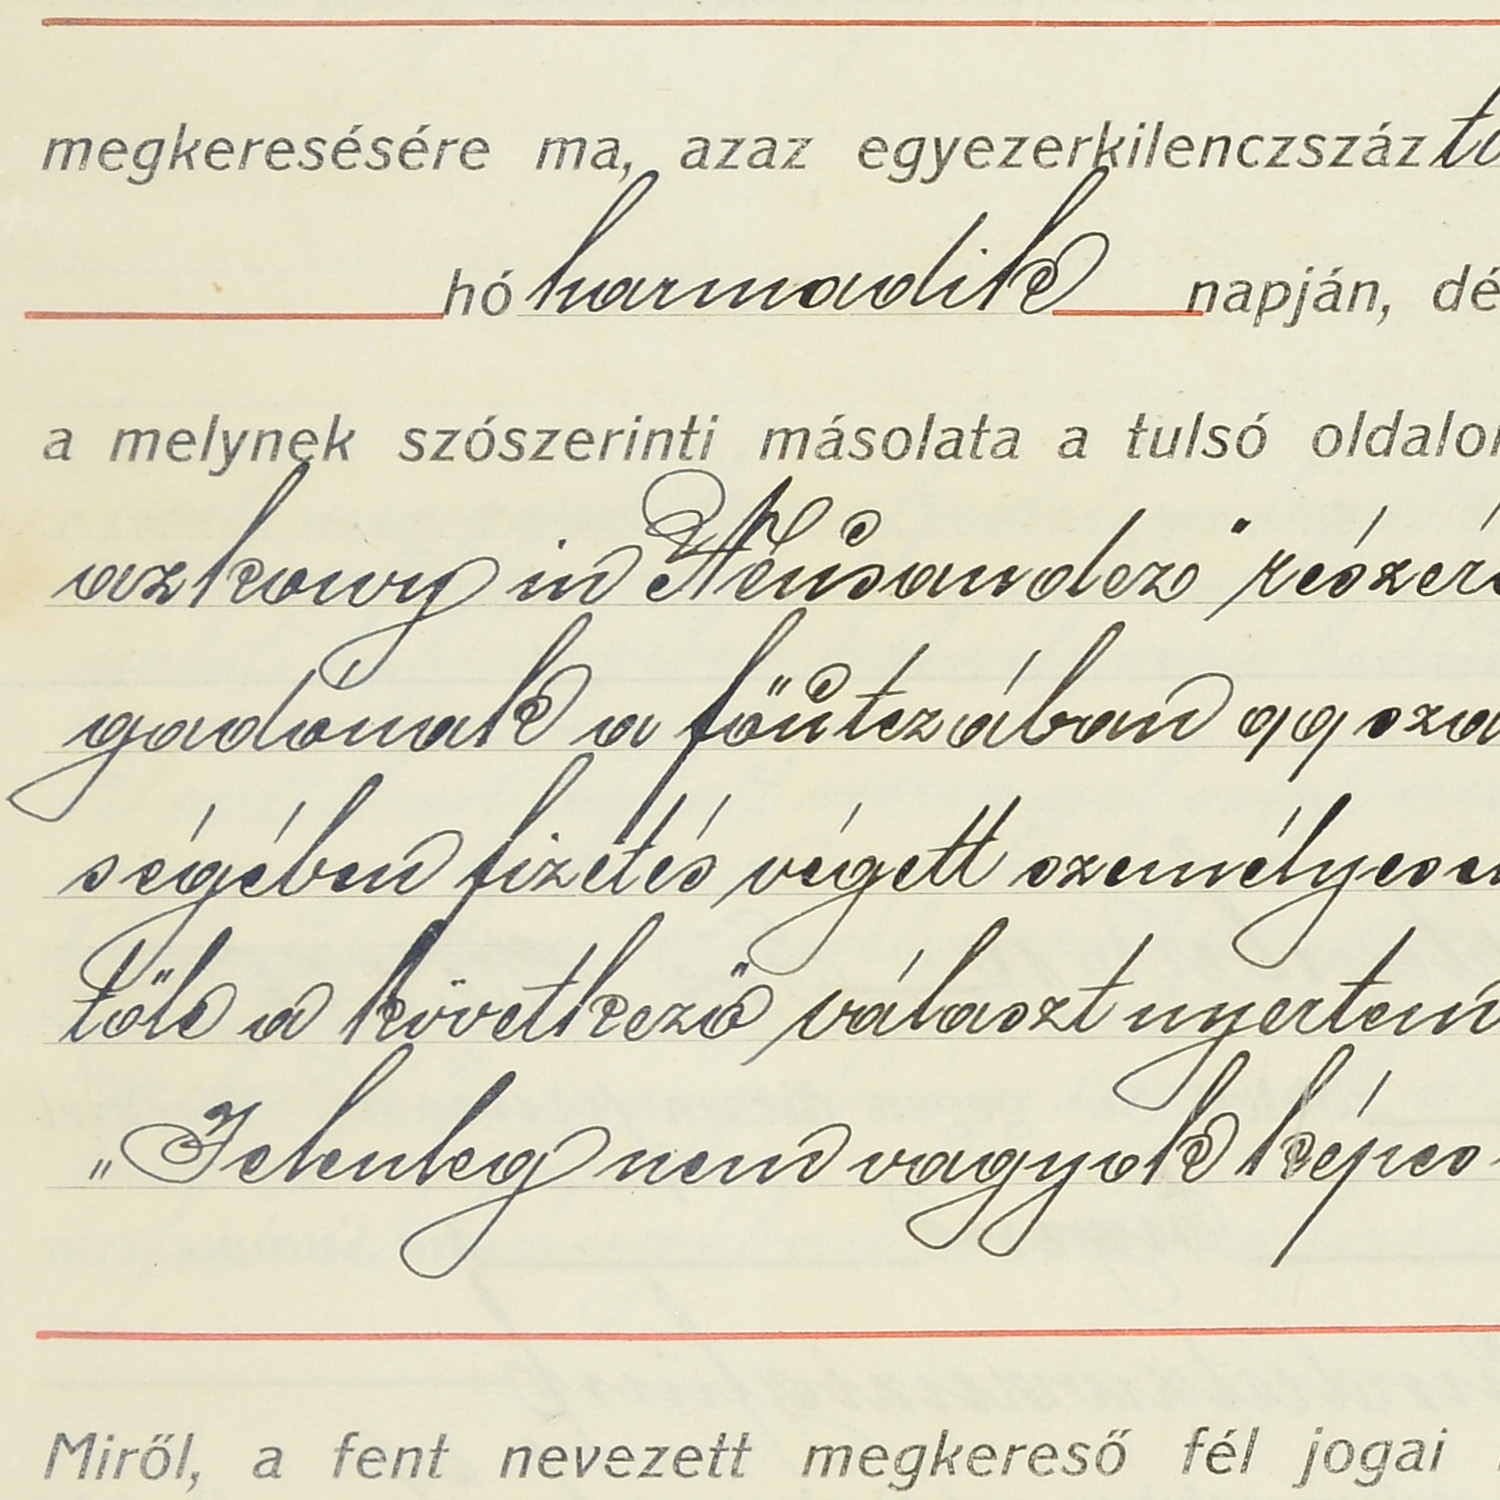 megkeresésére ma, azaz egyezerkilenczszáz
hó harmadik napján, dé
a melynek szószerinti másolata a tulsó oldalon
azkowy in Neusandez" részére
gadónak a főútczában 99 szá
ségében fizetés végett személyesen
tőle a következő választ nyertem
„Jelenleg nem vagyok képes
Miről, a fent nevezett megkereső fél jogai